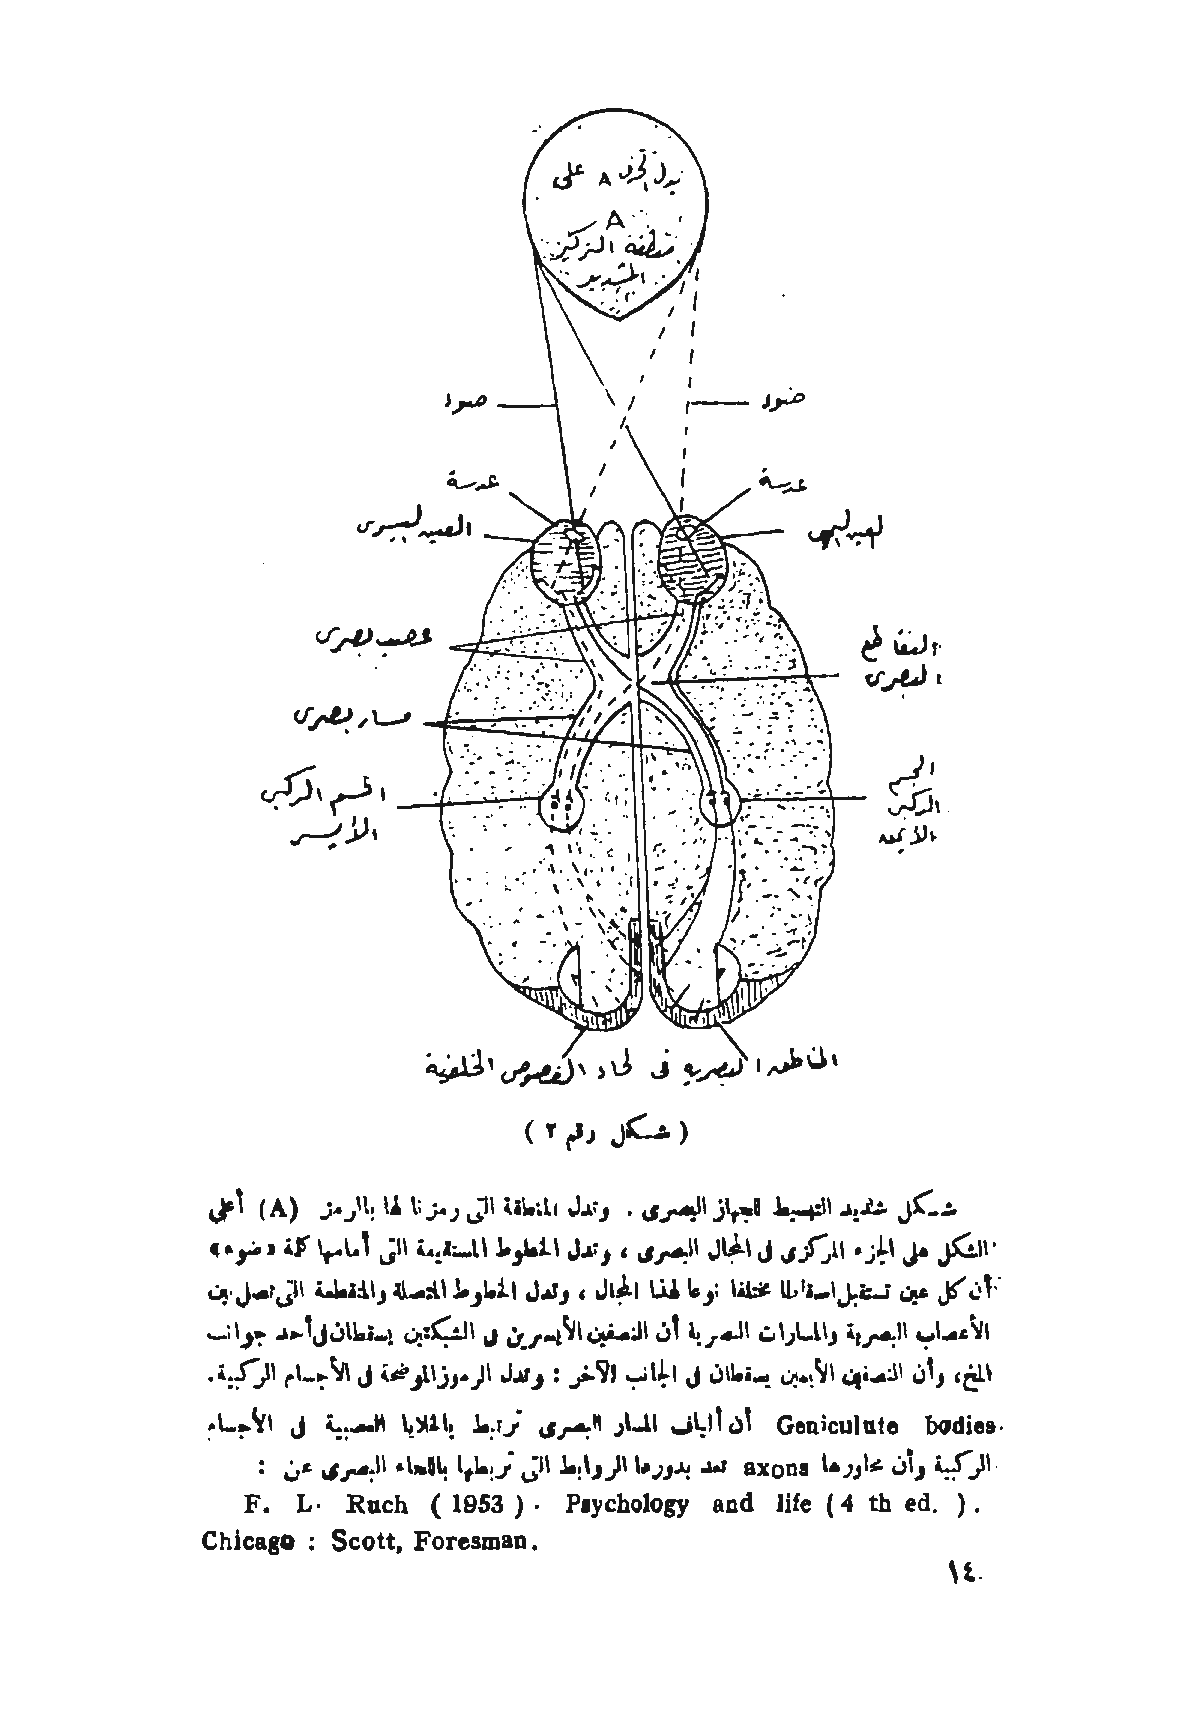 يدل الحرف A على
A
منطقة التركيز
الشديد
ضوء
ضوء
عدسة
عدسة
العين اليسرى
العين اليمنى
عصب بصرى
التقاطع
البصرى
مسار بصرى
الجسم الركبى
الأيسر
الجسم
الركبى
الأيمن
المناطق البصرية فى لحاء الفصوص الخلفية
( شكل رقم ٢ )
شكل شديد التبسيط للجهاز البصرى . وتدل المنطقة التى رمزنا لها بالرمز (A) أعلى
الشكل على الجزء المركزى فى المجال البصرى ، وتدل الخطوط المستقيمة التى أمامها كلمة «ضوء»
أن كل عين تستقبل اسقاطا مختلفا نوعا لهذا المجال ، وتدل الخطوط المتصلة والمتقطعة التى تصل بين
الأعصاب البصرية والمسارات البصرية أن النصفين الأيسرين فى الشبكتين يسقطان فى أحد جوانب
المخ، وأن النصفين الأيمنين يسقطان فى الجانب الآخر : وتدل الرموز الموضحة فى الأجسام الركبية.
Geniculute bodies أن ألياف المسار البصرى ترتبط بالخلايا العصبية فى الأجسام
الركبية وأن محاورها axons تعد بدورها الروابط التى تربطها باللحاء البصرى عن :
F. L. Ruch ( 1953 ) . Psychology and life ( 4 th ed. ) .
Chicago : Scott, Foresman.
١٤